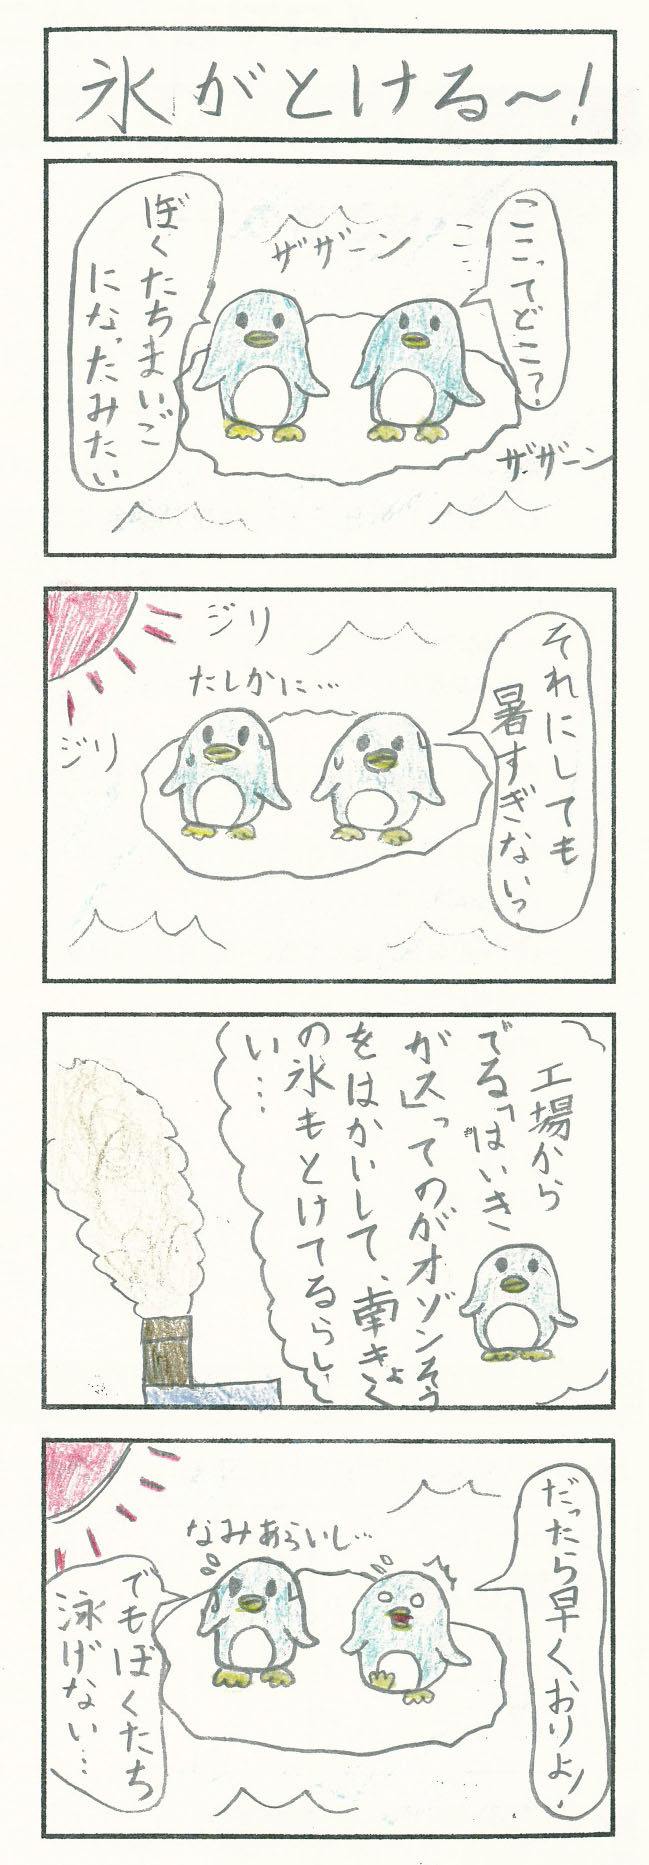 氷がとける〜!
ここってどこ?
ザザーン
ぼくたちまいご
になったみたい
ザザーン
それにしても
暑すぎないっ
ジリ
たしかに…
ジリ
工場から
でる「はいき
ガス」ってのがオゾンそう
をはかいして、南きょく
の氷もとけてるらし
い…
だったら早くおりよ!
なみあらいし…
でもぼくたち
泳げない…